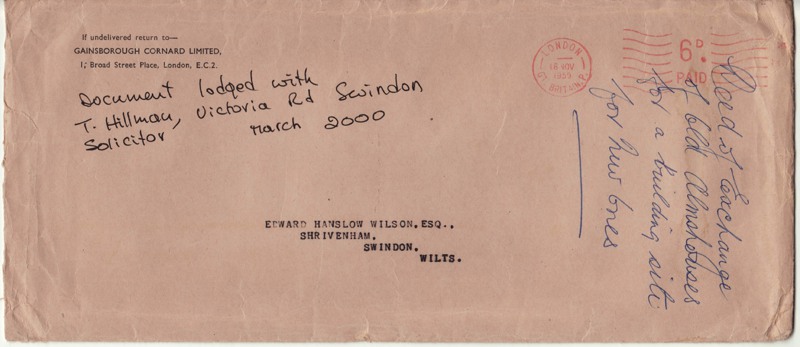 If undelivered return to—
GAINSBOROUGH CORNARD LIMITED,
1, Broad Street Place, London, E.C.2.
Document lodged with
T. Hillman, Victoria Rd Swindon
Solicitor March 2000
LONDON
18 NOV
1959
GT. BRITAIN P.
6D.
PAID
Deed of Exchange
of old Almshouses
for a building site
for new ones
EDWARD HANSLOW WILSON.ESQ..
SHRIVENHAM.
SWINDON.
WILTS.